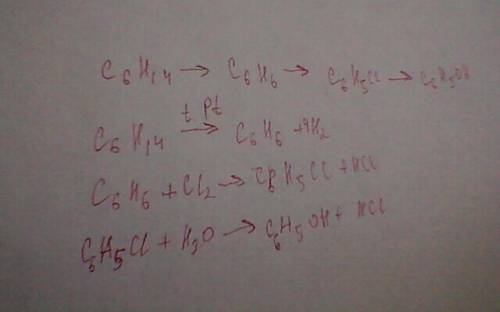 C6H14 → C6H6 → C6H5Cl → C6H5OH
C6H14 →(t, Pt) C6H6 + 4H2
C6H6 + Cl2 → C6H5Cl + HCl
C6H5Cl + H2O → C6H5OH + HCl